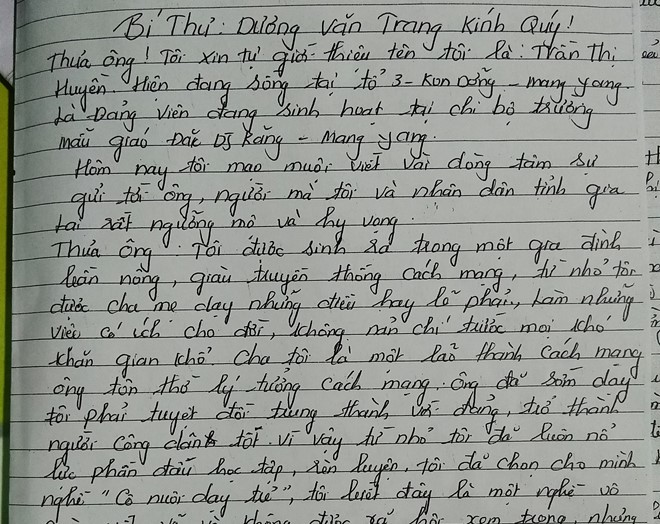 Bí Thư: Dương Văn Trang Kính Quý!
Thưa ông! Tôi xin tự giới thiệu tên tôi là: Trần Thị
Huyền. Hiện đang sống tại tổ 3 - Kon Dơng - mang yang.
Là Đảng viên đang sinh hoạt tại chi bộ trường
mẫu giáo Đăk Dj Răng - Mang yang.
Hôm nay tôi mạo muội viết vài dòng tâm sự
gửi tới ông, người mà tôi và nhân dân tỉnh gia
lai rất ngưỡng mộ và hy vọng.
Thưa ông: Tôi được sinh ra trong một gia đình
bần nông, giàu truyền thống cách mạng, từ nhỏ tôi
được cha mẹ dạy những điều hay lẽ phải, làm những
việc có ích cho đời, không nản chí trước mọi khó
khăn gian khổ. Cha tôi là một lão thành cách mạng
ông tôn thờ lý tưởng cách mạng. Ông đã sớm dạy
tôi phải tuyệt đối trung thành với đảng, trở thành
người công dân tốt. vì vậy từ nhỏ tôi đã luôn nỗ
lực phấn đấu học tập, rèn luyện, tôi đã chọn cho mình
nghề "Cô nuôi dạy trẻ", tôi biết đây là một nghề vô
không được xã hội xem trọng, nhưng